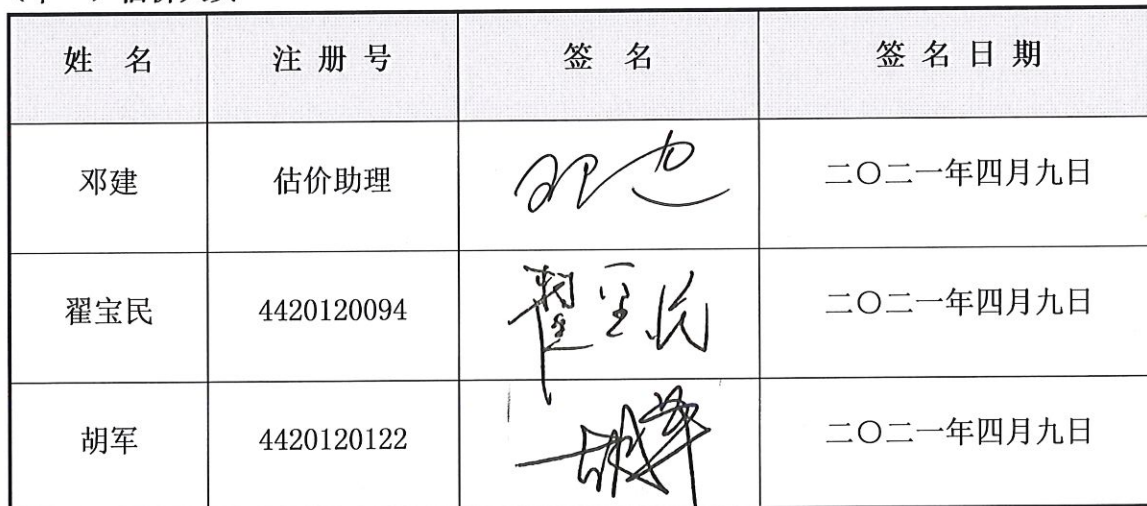 姓 名 注 册 号 签 名 签 名 日 期
邓建 估价助理 二〇二一年四月九日
翟宝民 4420120094 翟宝民 二〇二一年四月九日
胡军 4420120122 胡军 二〇二一年四月九日